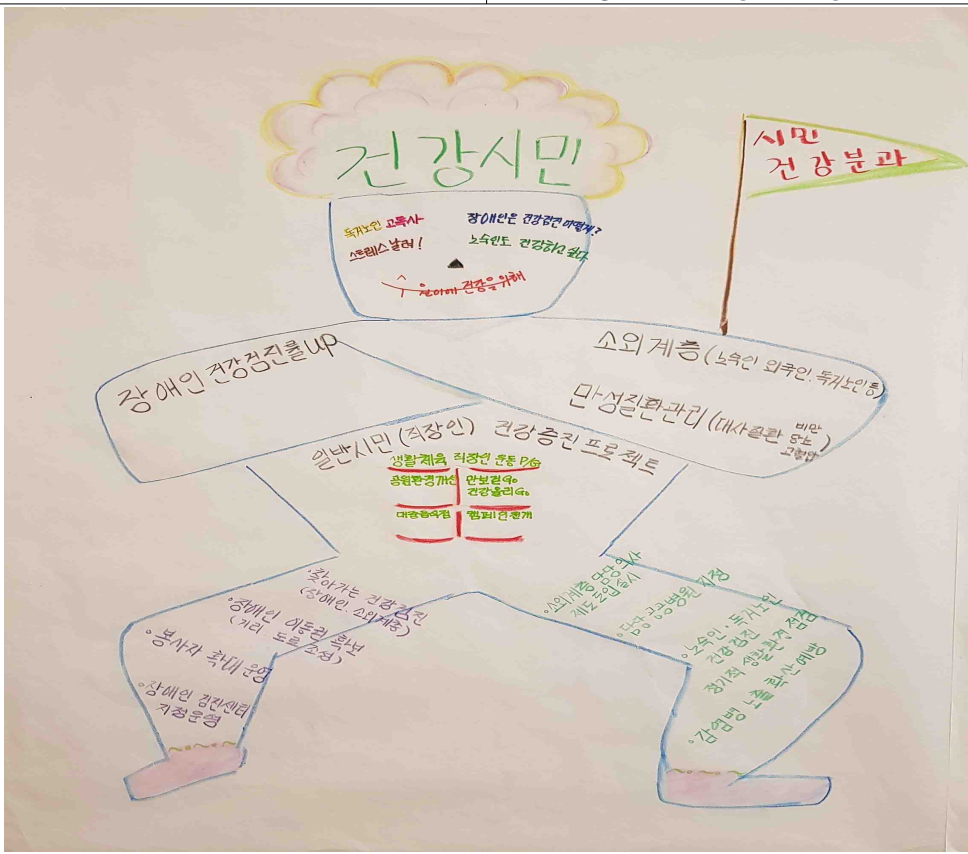 건강시민
시민
건강분과
독거노인 고독사
스트레스 날려!
장애인은 건강검진 어떻게?
노숙인도 건강하고 싶다
건강을 위해
장애인 건강검진률 up
소외계층 (노숙인 외국인. 독거노인 등)
만성질환관리 (대사질환 비만 당뇨 고혈압)
일반시민 (직장인) 건강증진 프로젝트
생활체육 직장인 운동 P/G
공원환경개선
만보걷Go
건강올리Go
캠페인 전개
·찾아가는 건강검진
(장애인. 소외계층)
·장애인 이동권 확보
(거리 도로 조성)
·봉사자 확대 운영
·장애인 검진센터
지정운영
·소외계층 담당 의사
제도 도입 실시
·담당 공공병원 지정
·노숙인·독거노인
건강검진
정기적 생활환경 점검
·감염병 노출 확산 예방